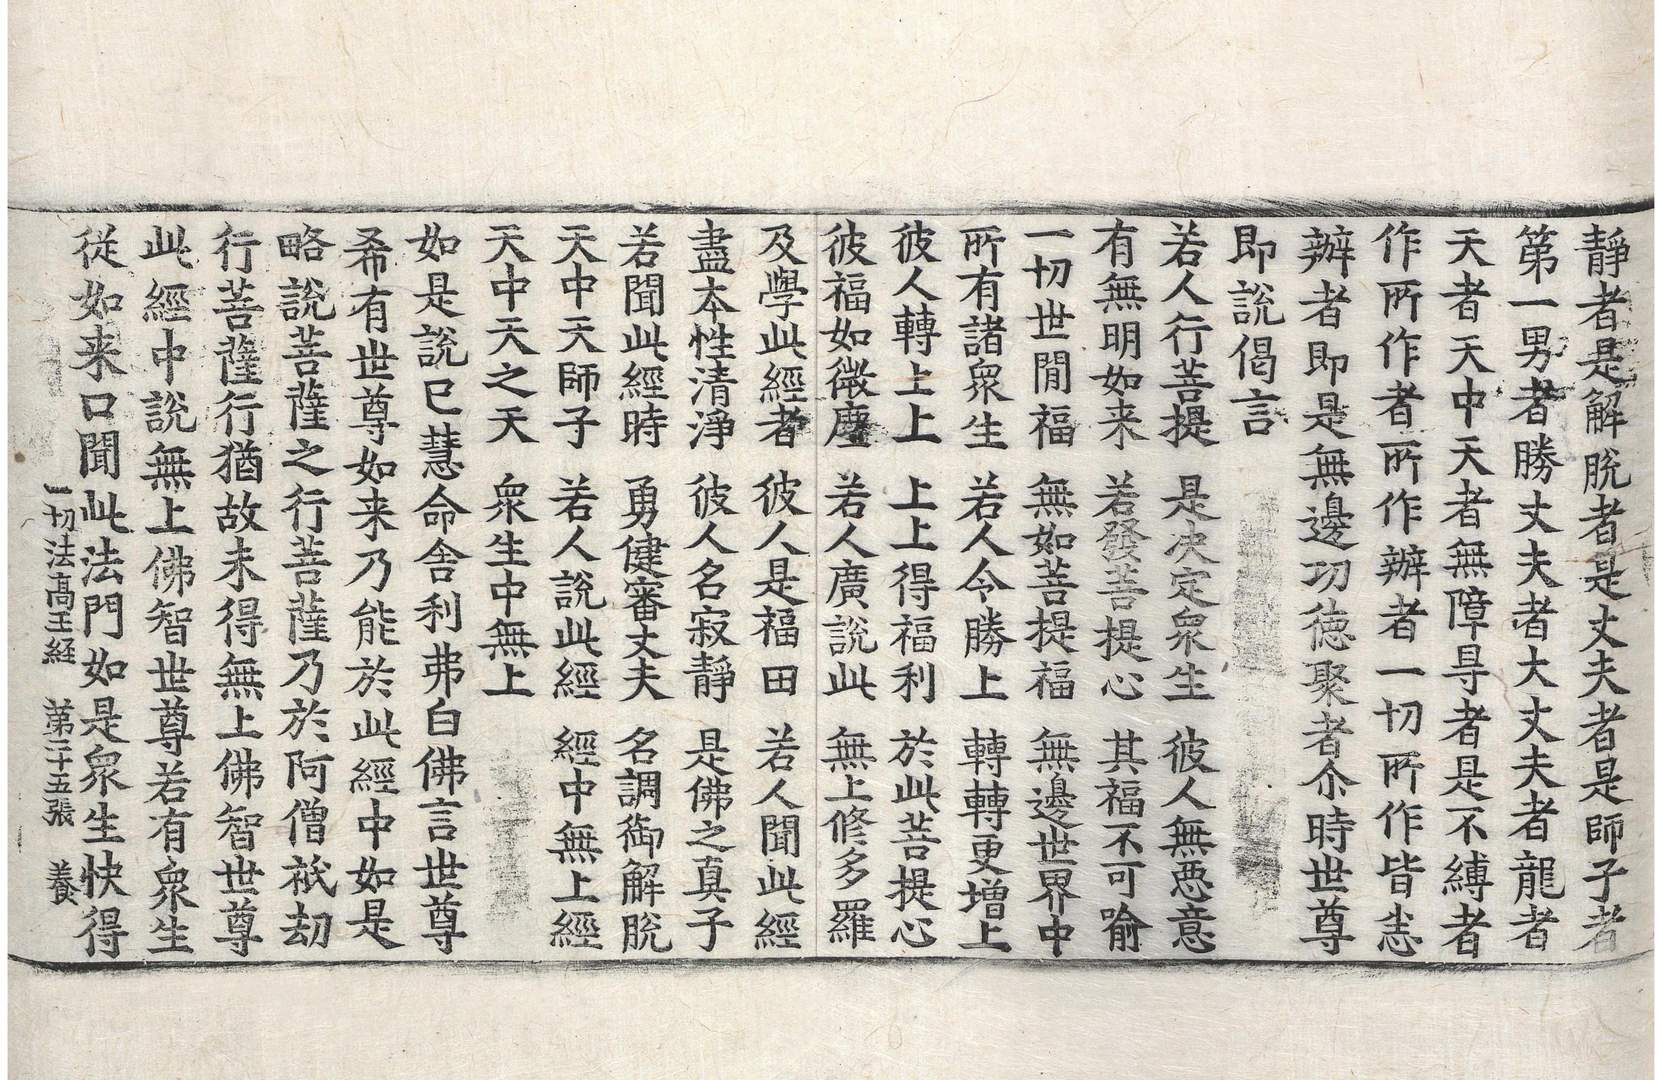 靜者是解脫者是丈夫者是師子者
第一男者勝丈夫者大丈夫者龍者
天者天中天者無障㝵者是不縛者
作所作者所作辦者一切所作皆悉
辦者即是無邊功德聚者尒時世尊
即說偈言
若人行菩提 是決定眾生 彼人無惡意
有無明如来 若發菩提心 其福不可喻
一切世閒福 無如菩提福 無邊世界中
所有諸眾生 若人令勝上 轉轉更增上
彼人轉上上 上上得福利 於此菩提心
彼福如微塵 若人廣說此 無上修多羅
及學此經者 彼人是福田 若人聞此經
盡本性清淨 彼人名寂靜 是佛之真子
若聞此經時 勇健審丈夫 名調御解脫
天中天師子 若人說此經 經中無上經
天中天之天 眾生中無上
如是說已慧命舍利弗白佛言世尊
希有世尊如来乃能於此經中如是
略說菩薩之行菩薩乃於阿僧祇劫
行菩薩行猶故未得無上佛智世尊
此經中說無上佛智世尊若有眾生
從如来口聞此法門如是眾生快得
一切法高王経 第二十五張 養